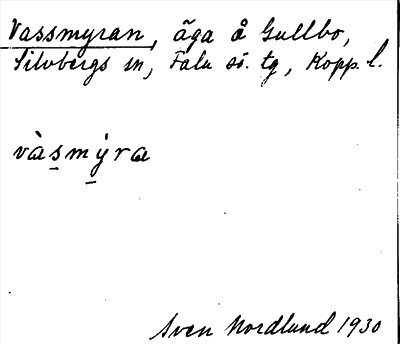 Vassmyran, äga å Gullbo,
Silvbergs sn, Falu sö. tg, Kopp. l.
vàs̲m̲ýra
Sven Nordlund 1930